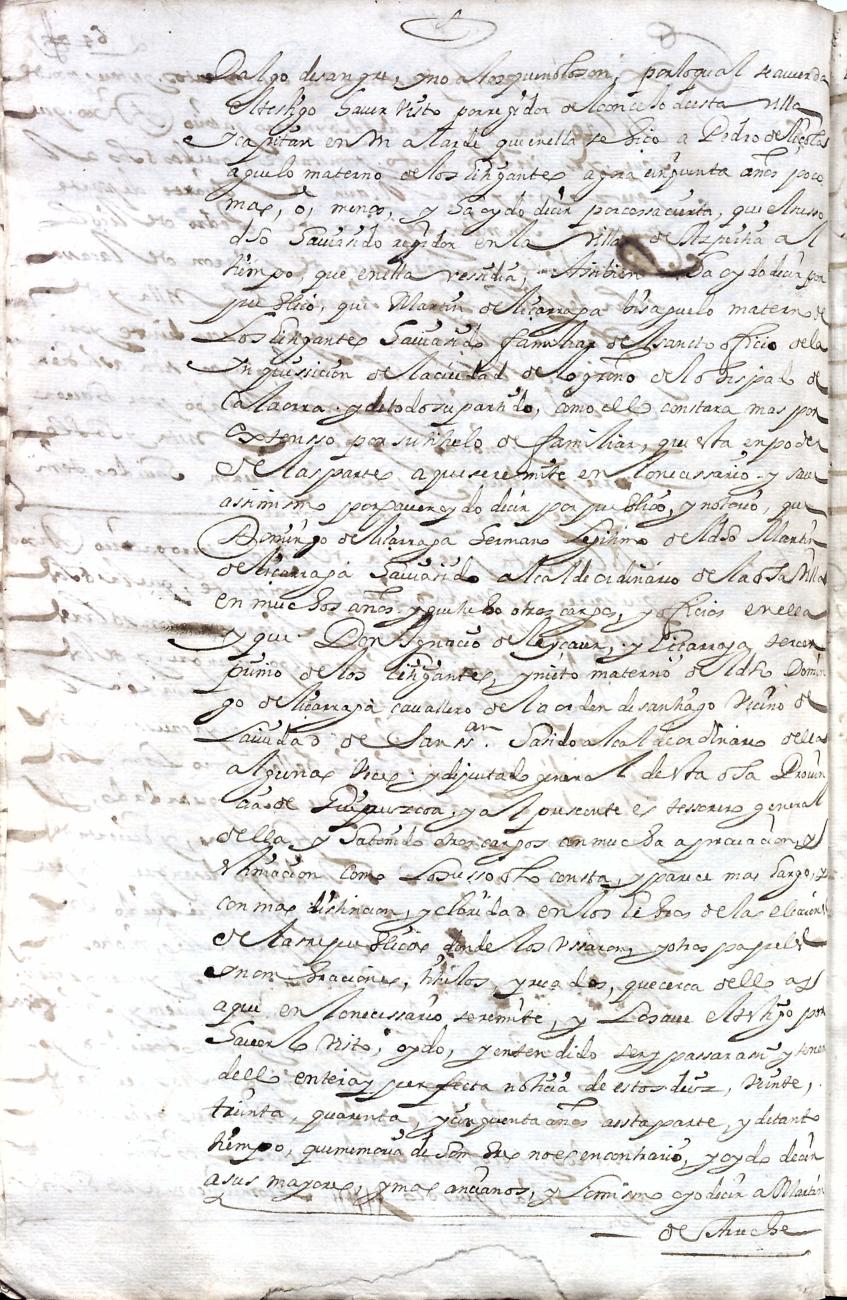 Dalgo de sangre, y no a los que no lo son, por lo qual se acuerda
el testigo haver visto por regidor del conçelo desta villa
y capitan en un alarde que en ella se hiço a Pedro de
aguelo materno de los litigantes agora cinquenta años poco
mas, o, menos, y ha oydo decir por cossa cierta, que el susso
dho havia sido regidor en la villa de Azpeitia al
tiempo que en ella ressidia, Ambien ha oydo decir por
publico, que Martin de liçarraga bisaguelo materno de
Los litigantes havia sido familiar del sancto officio de la
Inquissicion de la ciudad de logroño del obispado de
Calaorra y de todo su partido, como ello constara mas por
extensso por su titulo de familiar, que esta en poder
de las partes a que se remite en lo necessario y save
assimismo por haver oydo decir por publico, y notorio, que
Domingo de liçarraga hermano legitimo del dho Martin
de liçarraga havia sido alcalde ordinario de la dha villa
en muchos años y que tubo otros cargos, y officios en ella
y que Don Ignacio de y Liçarraga tercer
primo de los litigantes, y nieto materno del dho Domin
go de liçarraga cavallero de la orden de santiago vecino de
la ciudad de San ssan. ha sido alcalde ordinario della
algunas veces y diputado general de esta dha Provin
cia de Guipuzcoa, y al pressente es tessorero general
della y ha tenido otros cargos con mucha aprovacion, y
estimacion como lo susso dho consta, y parece mas largo, y
con mas distincion, y claridad en los libros de las elecciones
de las republicas donde los ussaron, y otros papeles
y nombraciones, titulos, y recados, que cerca dello ay
a que en lo necessario se remite, y lo save el testigo por
haverlo visto, oydo, y entendido ser y passar assi y tener
dello entera y perfecta noticia de estos diez, veinte,
treinta, quarenta, y cinquenta años a esta parte, y de tanto
tiempo, que memoria de hombres no es en contrario, y oydo decir
a sus mayores, y mas ancianos, y lo mismo oyo decir a Martin
de